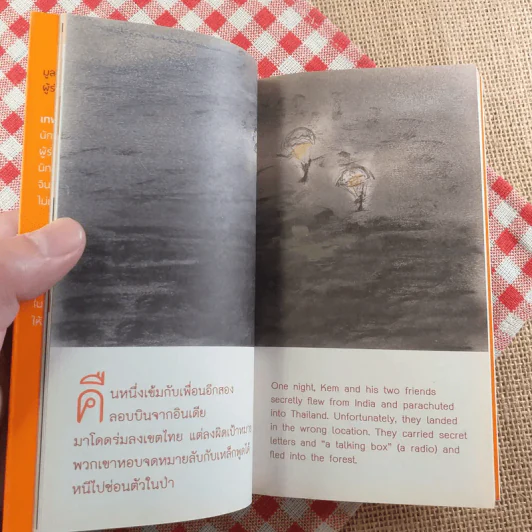 คืนหนึ่งเข้มกับเพื่อนอีกสอง
ลอบบินจากอินเดีย
มาโดดร่มลงเขตไทย แต่ลงผิดเป้าหมาย
พวกเขาหอบจดหมายลับกับเหล็กพูดได้
หนีไปซ่อนตัวในป่า
One night, Kem and his two friends
secretly flew from India and parachuted
into Thailand. Unfortunately, they landed
in the wrong location. They carried secret
letters and “a talking box” (a radio) and
fled into the forest.